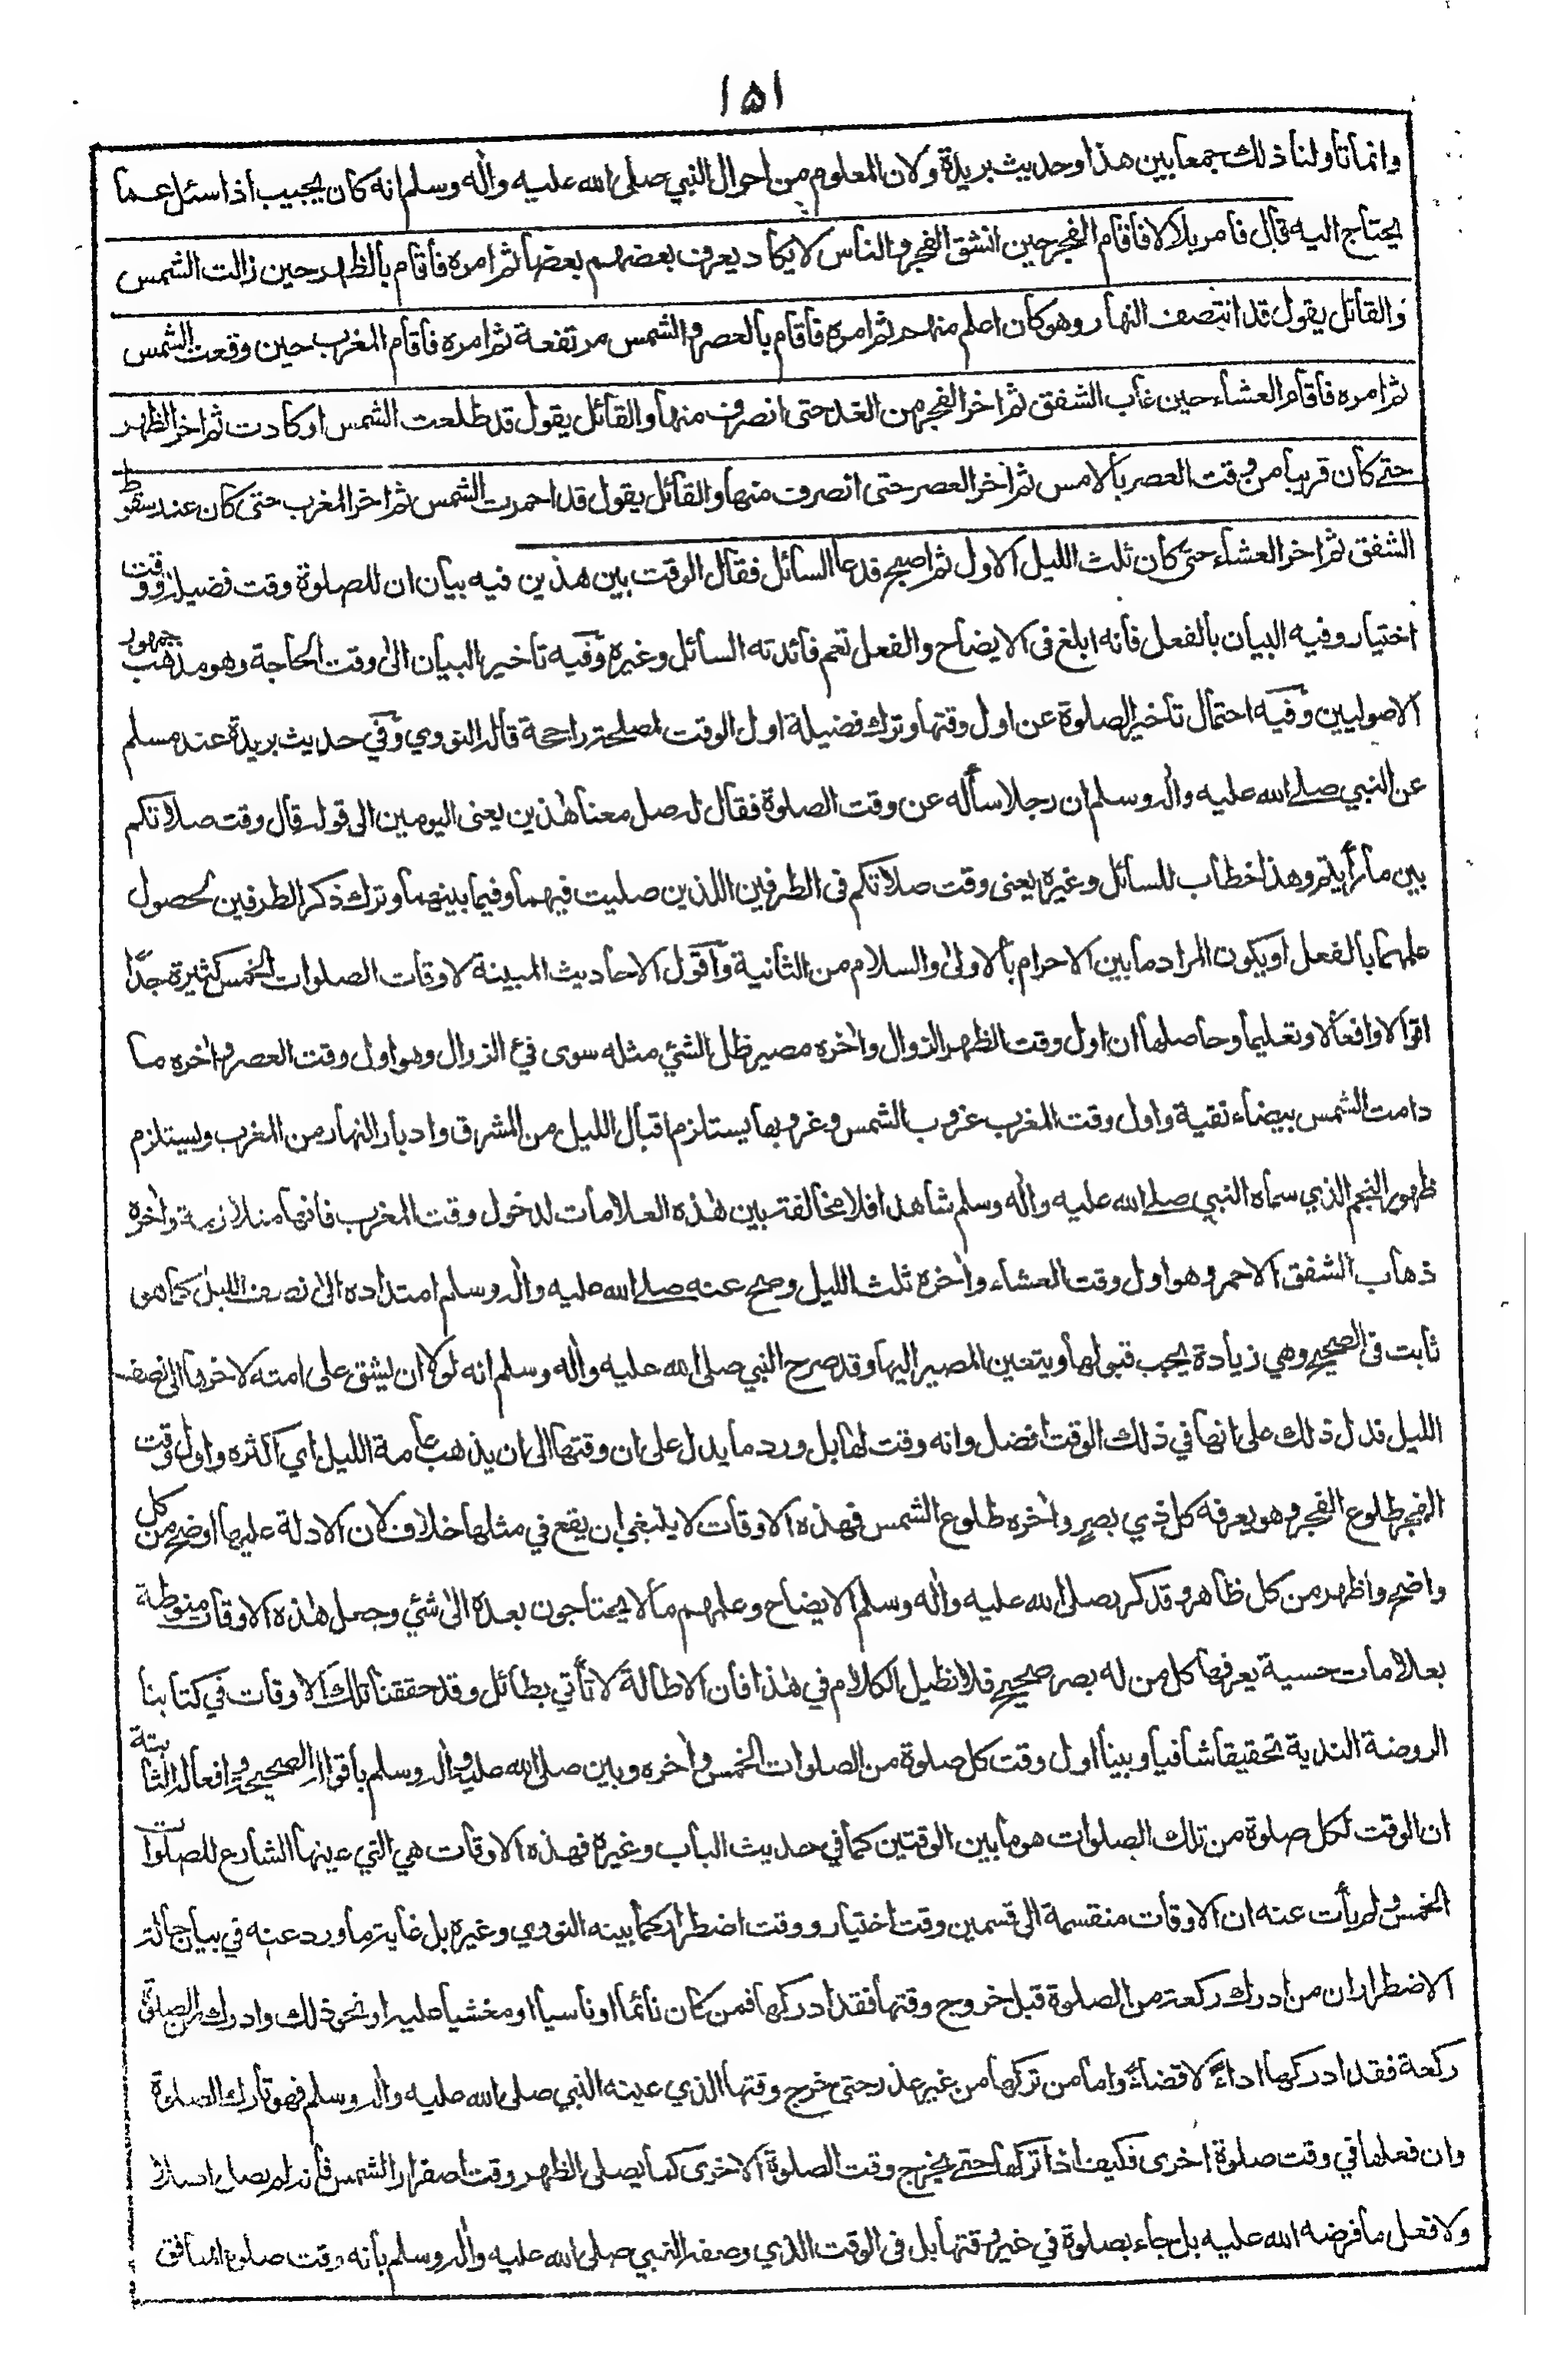 ١٥١
وانما تأولنا ذلك جمعا بين هذا وحديث بريدة ولان المعلوم من احوال النبي صلى الله عليه واٰله وسلم انه كان يجيب اذا سئل عما
يحتاج اليه قال فامر بلالا فاقام الفجر حين انشق الفجر والناس لا يكاد يعرف بعضهم بعضا ثم امره فاقام بالظهر حين زالت الشمس
والقائل يقول قد انتصف النهار وهو كان اعلم منهم ثم امره فاقام بالعصر والشمس مرتفعة ثم امره فاقام المغرب حين وقعت الشمس
ثم امره فاقام العشاء حين غاب الشفق ثم اخر الفجر من الغد حتى انصرف منها والقائل يقول قد طلعت الشمس او كادت ثم اخر الظهر
حتى كان قريبا من وقت العصر بالامس ثم اخر العصر حتى انصرف منها والقائل يقول قد احمرت الشمس ثم اخر المغرب حتى كان عند سقوط
الشفق ثم اخر العشاء حتى كان ثلث الليل الاول ثم اصبح فدعا السائل فقال الوقت بين هذين فيه بيان ان للصلوة وقت فضيلة ووقت
اختيار وفيه البيان بالفعل فانه ابلغ فى الايضاح والفعل تعم فائدته السائل وغيره وفيه تاخير البيان الى وقت الحاجة وهو مذهب جمهور
الاصوليين وفيه احتمال تاخير الصلوة عن اول وقتها وترك فضيلة اول الوقت لمصلحة راجحة قاله النووي وفي حديث بريدة عند مسلم
عن النبي صلى الله عليه واٰله وسلم ان رجلا سأله عن وقت الصلوة فقال له صل معنا هٰذين يعنى اليومين الى قوله قال وقت صلاتكم
بين ما رأيتم وهذا خطاب للسائل وغيره يعنى وقت صلاتكم فى الطرفين اللذين صليت فيهما وفيما بينهما وترك ذكر الطرفين لحصول
علمهما بالفعل او يكون المراد ما بين الاحرام بالاولى والسلام من الثانية وأقول الاحاديث المبينة لاوقات الصلوات الخمس كثيرة جدّا
اقوالا وافعالا وتعليما وحاصلها ان اول وقت الظهر الزوال واٰخره مصير ظل الشئي مثله سوى فئ الزوال وهو اول وقت العصر واٰخره ما
دامت الشمس بيضاء نقية واول وقت المغرب غروب الشمس وغروبها يستلزم اقبال الليل من المشرق وادبار النهار من المغرب ويستلزم
ظهور النجم الذي سماه النبي صلى الله عليه واٰله وسلم شاهدا فلا مخالفة بين هٰذه العلامات لدخول وقت المغرب فانها متلازمة واٰخره
ذهاب الشفق الاحمر وهو اول وقت العشاء واٰخره ثلث الليل وصح عنه صلى الله عليه واٰله وسلم امتداده الى نصف الليل كما هو
ثابت فى الصحيح وهي زيادة يجب قبولها ويتعين المصير اليها وقد صرح النبي صلى الله عليه واٰله وسلم انه لولا ان يشق على امته لاخرها الى نصف
الليل فدل ذلك على انها في ذلك الوقت افضل وانه وقت لها بل ورد ما يدل على ان وقتها الى ان يذهب عامة الليل اي اكثره واول وقت
الفجر طلوع الفجر وهو يعرفه كل ذي بصر واٰخره طلوع الشمس فهذه الاوقات لا ينبغي ان يقع في مثلها خلاف لان الادلة عليها اوضح من كل
واضح واظهر من كل ظاهر وقد كرر صلى الله عليه واٰله وسلم الايضاح وعلمهم ما لا يحتاجون بعده الى شئي وجعل هٰذه الاوقات منوطة
بعلامات حسية يعرفها كل من له بصر صحيح فلا نطيل الكلام في هٰذا فان الاطالة لا تأتي بطائل وقد حققنا تلك الاوقات في كتابنا
الروضة الندية تحقيقا شافيا وبينا اول وقت كل صلوة من الصلوات الخمس واٰخره وبين صلى الله عليه واٰله وسلم باقواله الصحيحة وافعاله الثابتة
ان الوقت لكل صلوة من تلك الصلوات هو ما بين الوقتين كما في حديث الباب وغيره فهذه الاوقات هي التي عينها الشارع للصلوات
الخمس ولم يأت عنه ان الاوقات منقسمة الى قسمين وقت اختيار ووقت اضطرار كما بينه النووي وغيره بل غاية ما ورد عنه في بيان حالة
الاضطرار ان من ادرك ركعة من الصلوة قبل خروج وقتها فقد ادركها فمن كان نائما او ناسيا او مغشيا عليه او نحو ذلك وادرك من الصلوة
ركعة فقد ادركها اداءً لا قضاءً واما من تركها من غير عذر حتى خرج وقتها الذي عينه النبي صلى الله عليه واٰله وسلم فهو تارك الصلوة
وان فعلها في وقت صلوة اخرى فكيف اذا تركها حتى يخرج وقت الصلوة الاخرى كما يصلى الظهر وقت اصفرار الشمس فانه لم يصل اصلا
ولا فعل ما فرضه الله عليه بل جاء بصلوة في غير وقتها بل فى الوقت الذي وصفه النبي صلى الله عليه واٰله وسلم بأنه وقت صلوة المنافق